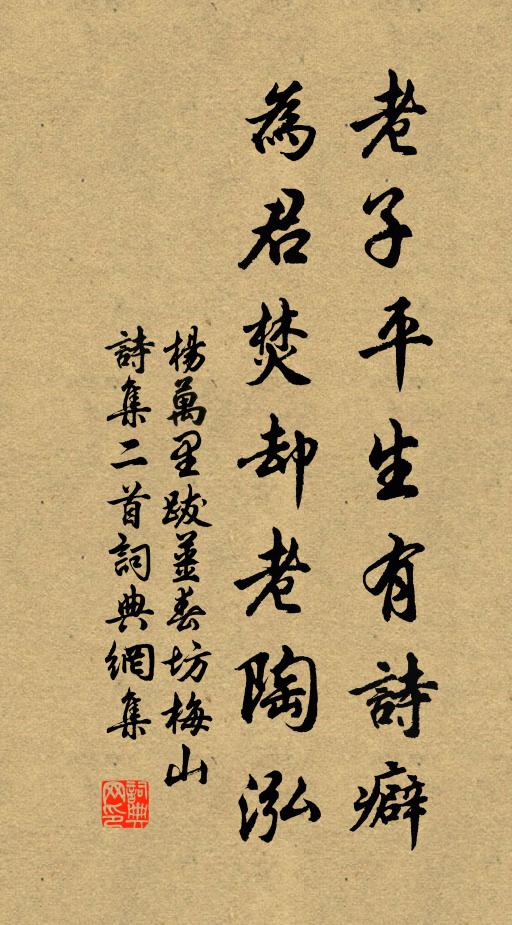 老子平生有詩癖
為君焚却老陶泓
楊萬里跋薑春坊梅山
詩集二首詞典網集
詞典网印